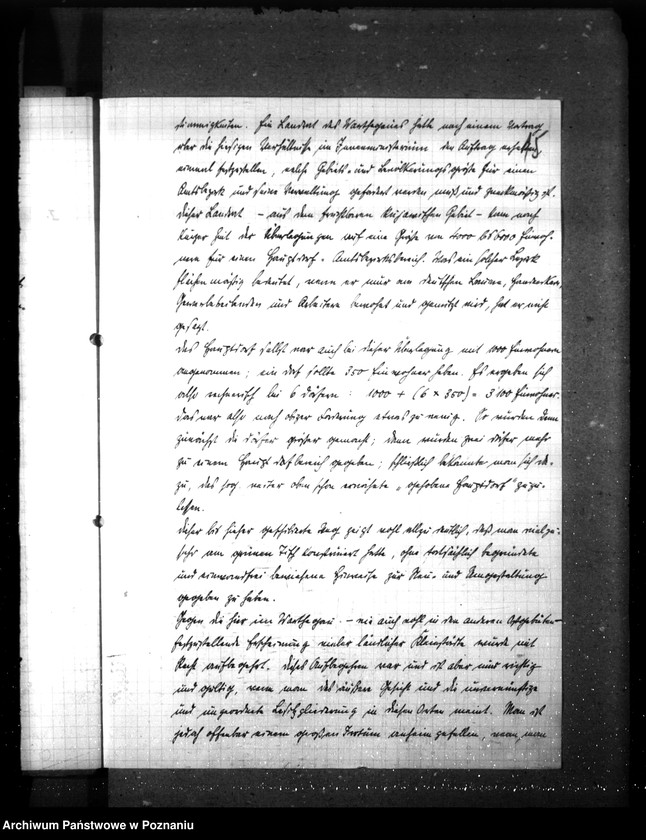 stimmigkeiten. Ein Landrat des Warthegaues hatte nach einem Vortrag
über die hiesigen Verhältnisse im Innenministerium den Auftrag erhalten,
einmal festzustellen, welche Gebiets- und Bevölkerungsgröße für einen
Amtsbezirk und seine Verwaltung gefordert werden muß und zweckmäßig ist.
Dieser Landrat – aus dem fruchtbaren Kujawischen Gebiet – kam nach
langer Zeit der Überlegungen auf eine Größe von 4000 bis 5000 Einwoh-
nern für einen Hauptdorf-Amtsbezirksbereich. Was ein solcher Bezirk
flächenmäßig bedeutet, wenn er nur von deutschen Bauern, Handwerkern,
Gewerbetreibenden und Arbeitern bewohnt und genutzt wird, hat er nicht
gesagt.
Das Hauptdorf selbst war auch bei dieser Überlegung mit 1000 Einwohnern
angenommen; ein Dorf sollte 350 Einwohner haben. Es ergeben sich
also rechnerisch bei 6 Dörfern : 1000 + (6 x 350) = 3100 Einwohner.
Das war also nach obiger Forderung etwas zu wenig. So wurden denn
zunächst die Dörfer größer gemacht; dann wurden zwei Dörfer mehr
zu einem Hauptdorfbereich gegeben; schließlich bekannte man sich da-
zu, das sog. weiter oben schon erwähnte „gehobene Hauptdorf" zuzu-
lassen.
Dieser bis hieher geschilderte Weg zeigt wohl allzu deutlich, daß man viel zu
sehr am grünen Tisch konstruiert hatte, ohne tatsächlich begründete
und einwandfrei bewiesene Hinweise zur Neu- und Umgestaltung
gegeben zu haben.
Gegen die hier im Warthegau – wie auch wohl in den anderen Ostgebieten –
festzustellende Erscheinung vieler ländlicher Kleinstädte wurde mit
Recht aufbegehrt. Dieses Aufbegehren war und ist aber nur richtig
und gültig, wenn man das äußere Gesicht und die unvernünftige
und ungeordnete Besitzgliederung in diesen Orten meint. Man ist
jedoch offenbar einem großen Irrtum anheim gefallen, wenn man
Archiwum Państwowe w Poznaniu